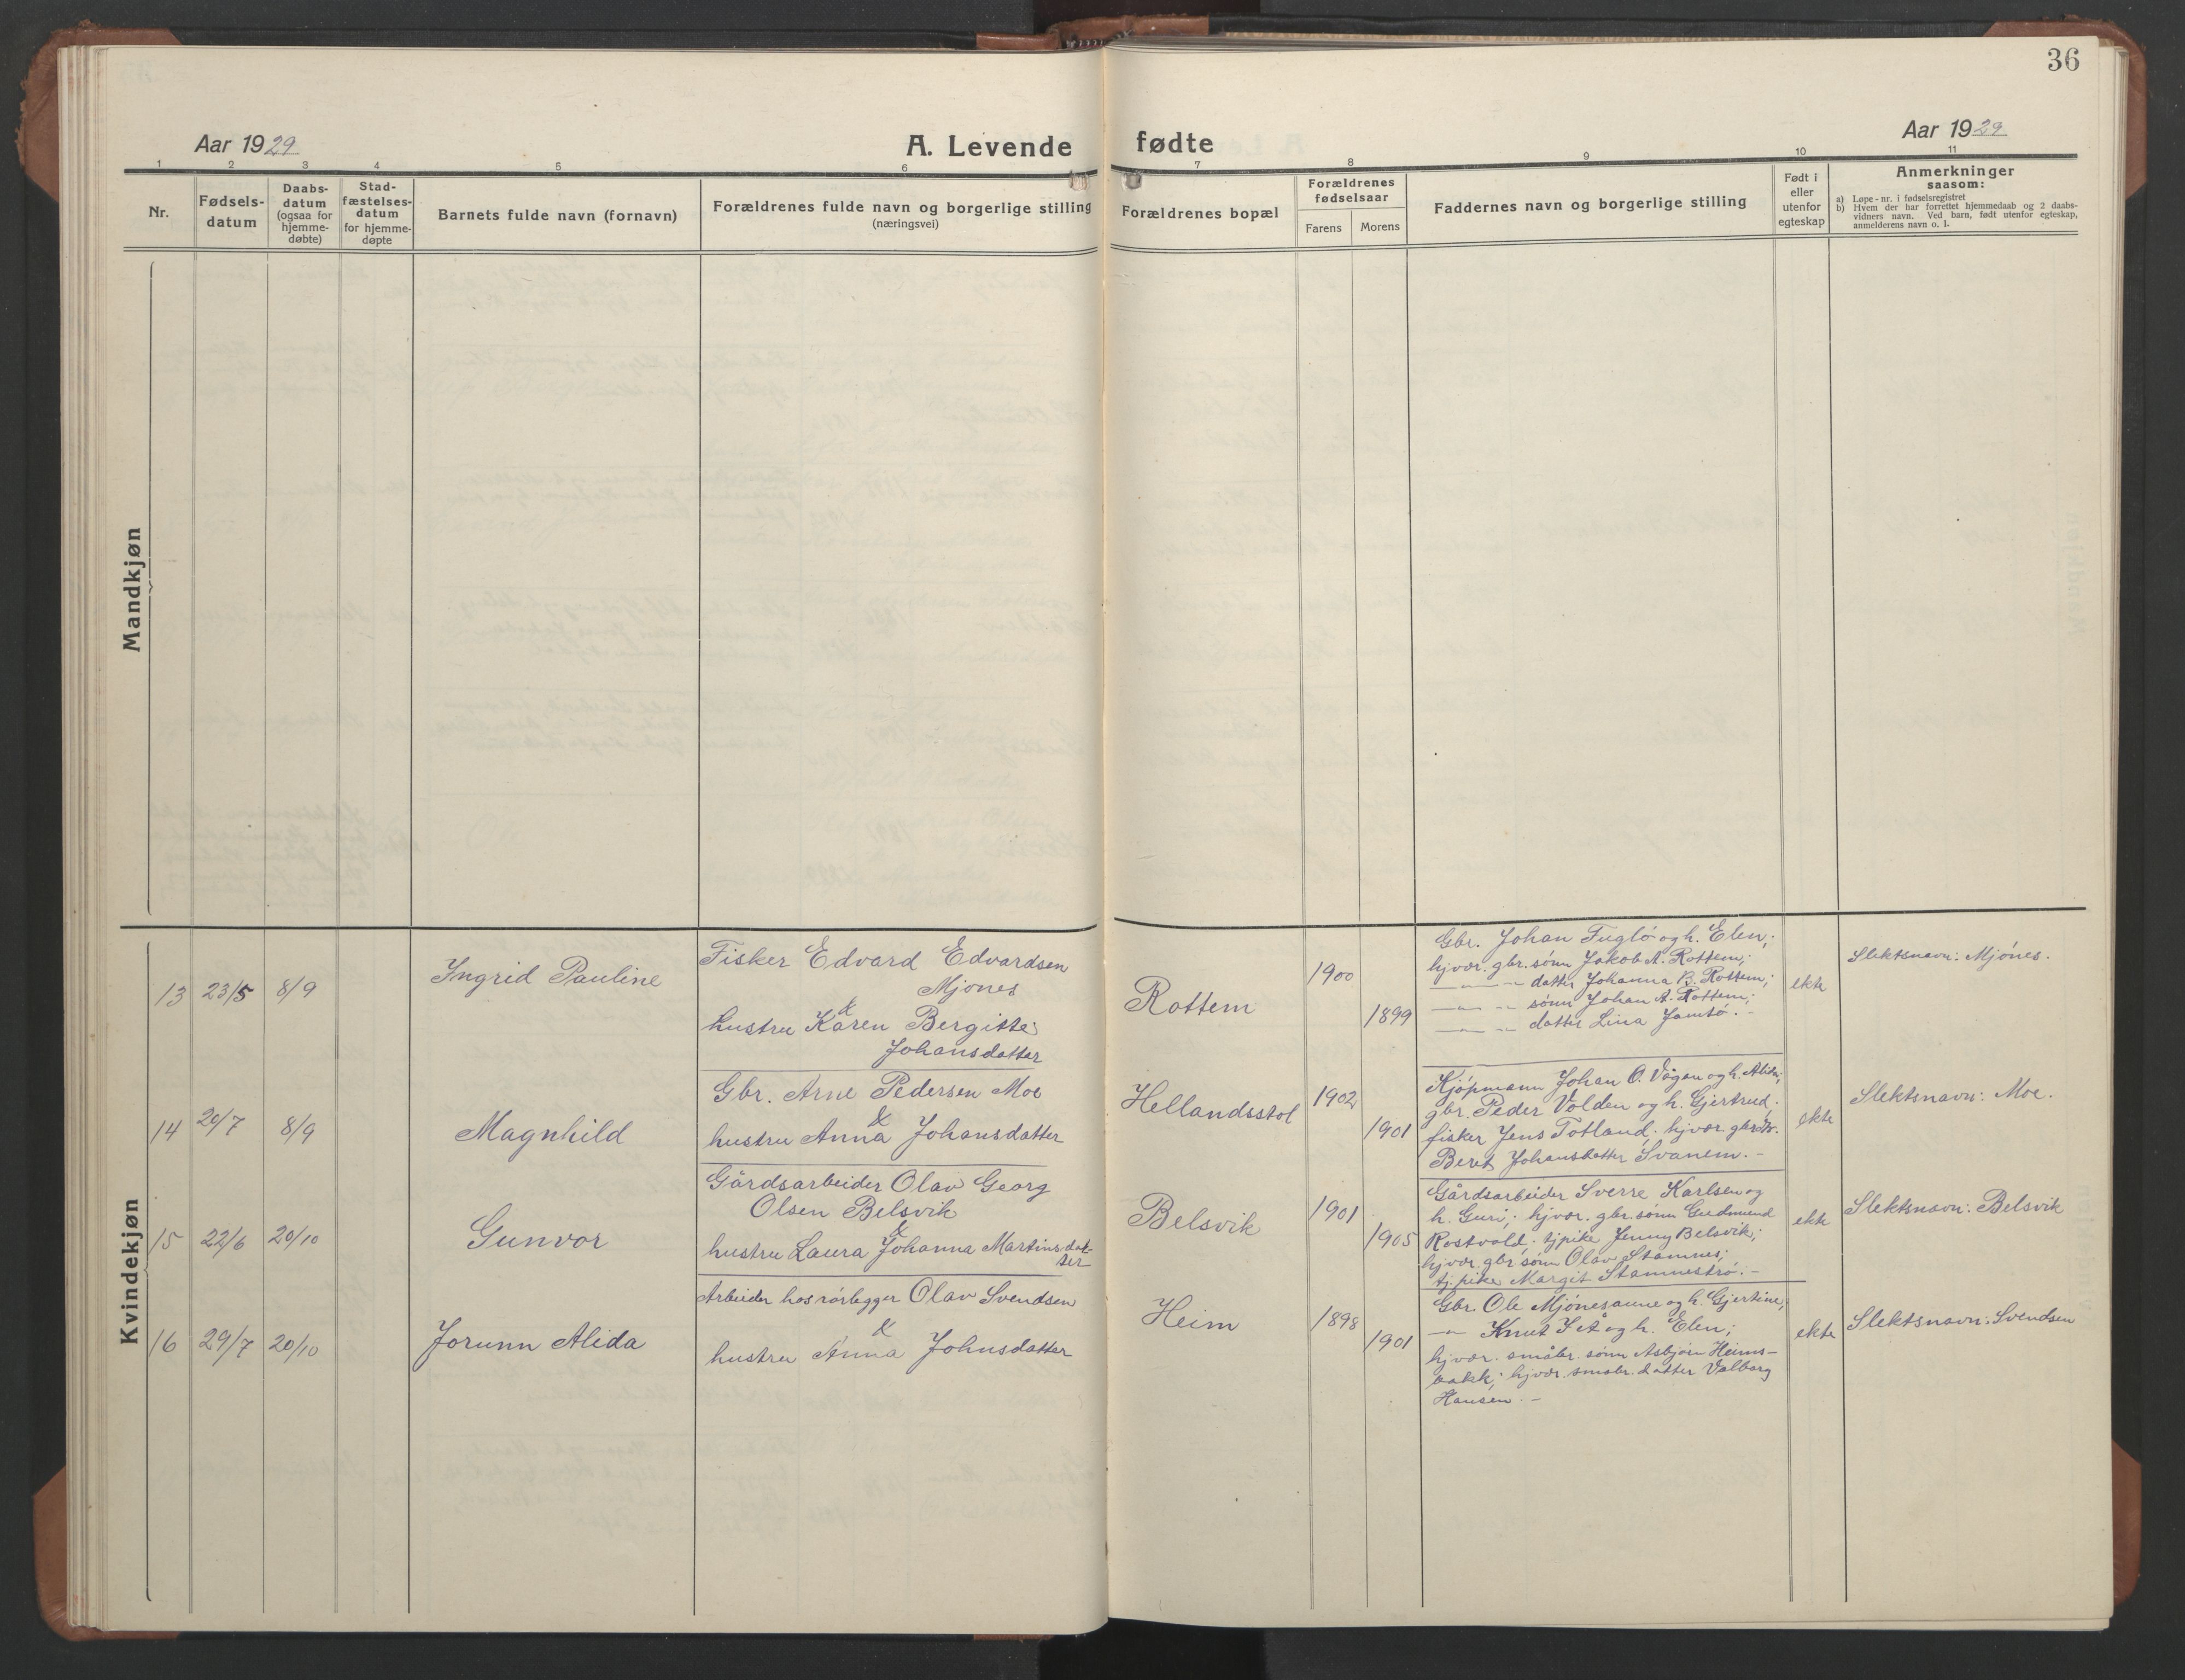 36
Aar 1929
A. Levende fødte
Aar 1929
1 2 3 4 5 6 7 8 9 10 11
Nr.
Fødsels-
datum
Daabs-
datum
(ogsaa for
hjemme-
døbte)
Stad-
fæstelses-
datum
for hjemme-
døpte
Barnets fulde navn (fornavn)
Forældrenes fulde navn og borgerlige stilling
(næringsvei)
Forældrenes bopæl
Forældrenes
fødselsaar
Farens Morens
Faddernes navn og borgerlige stilling
Født i
eller
utenfor
egteskap
Anmerkninger
saasom:
a) Løpe-nr. i fødselsregistret
b) Hvem der har forrettet hjemmedaab og 2 daabs-
vidners navn. Ved barn, født utenfor egteskap,
anmelderens navn o. l.
Mandkjøn
Kvindekjøn
13 23/5 8/9
Ingrid Pauline
Fisker Edvard Edvardsen
Mjónes
&
hustru Karen Bergitte
Johansdatter
Rottem
1900
1899
Gbr. Johan Fugló og h. Elen;
hjvær. gbr. sónn Jakob A. Rottem;
— " — " datter Johanna B. Rottem;
— " — " sónn Johan A. Rottem;
— " — " datter Lina Jamtó. -
ekte
Slektsnavn: Mjónes.
14 20/7 8/9
Magnhild
Gbr. Arne Pedersen Moe
&
hustru Anna Johansdatter
Hellandsstol
1902
1901
Kjópmann Johan O. Vågan og h. Alida;
gbr. Peder Volden og h. Gjertrud;
fisker Jens Totland; hjvær. gbrdtr.
Beret Johansdatter Svanem. -
ekte
Slektsnavn: Moe.
15 22/6 20/10
Gunvor
Gårdsarbeider Olav Georg
Olsen Belsvik
&
hustru Laura Johanna Martinsdat-
ter
Belsvik
1901
1905
Gårdsarbeider Sverre Karlsen og
h. Guri; hjvær. gbr. sónn Gudmund
Rostvold; tjpike Jenny Belsvik;
hjvær. gbr. sónn Olav Stamnes;
tj. pike Margit Stamnestró. -
ekte
Slektsnavn: Belsvik
16 29/7 20/10
Jorunn Alida
Arbeider hos rórlegger Olav Svendsen
&
hustru Anna Johnsdatter
Heim
1898
1901
Gbr. Ole Mjónesaune og h. Gjertine;
— " Knut og h. Elen;
hjvær. småbr. sónn Asbjórn Heims-
bakk; hjvær. småbr. datter Valborg
Hansen. -
ekte
Slektsnavn: Svendsen